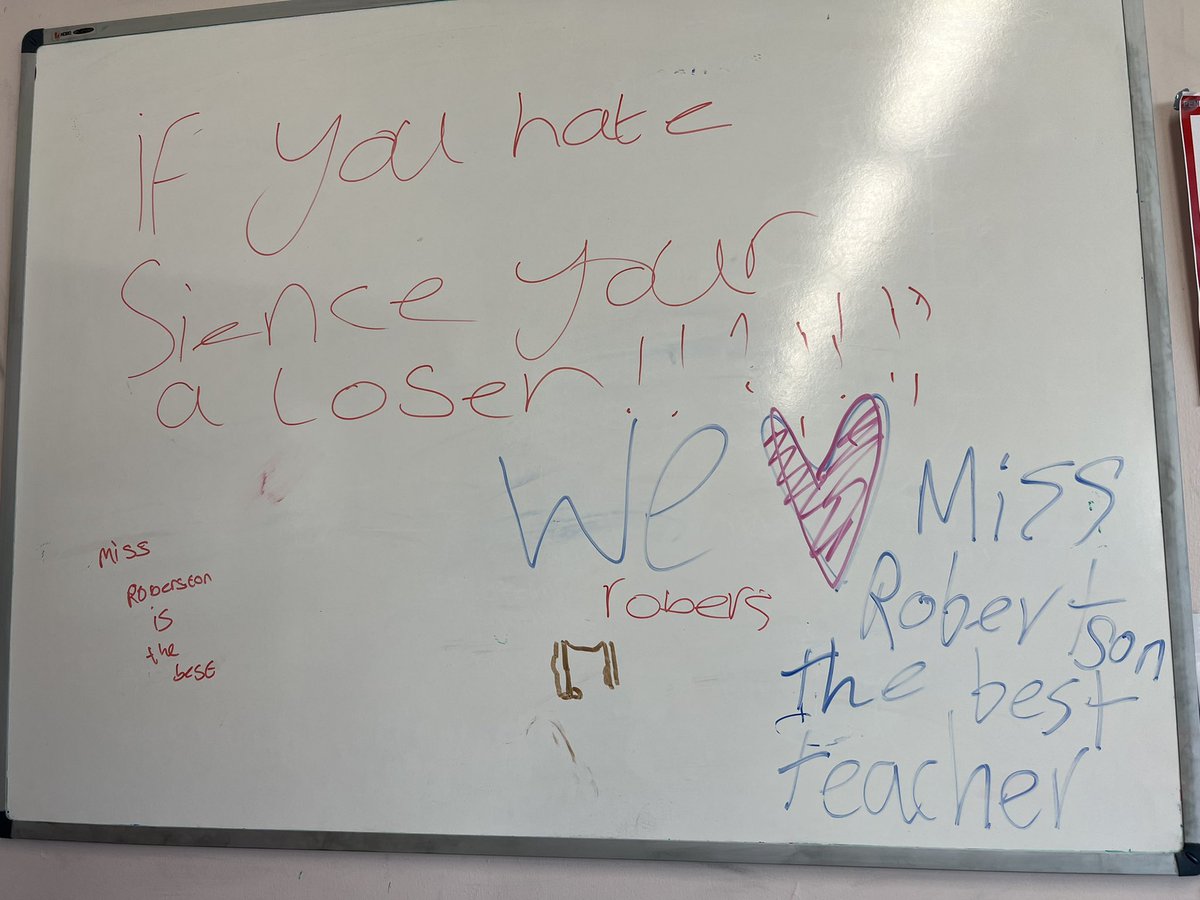 if you hate
Sience your
a loser!!!!!!!!
We ♥ Miss
Robertson
the best
teacher
robers
miss
Roberston
is
the
best